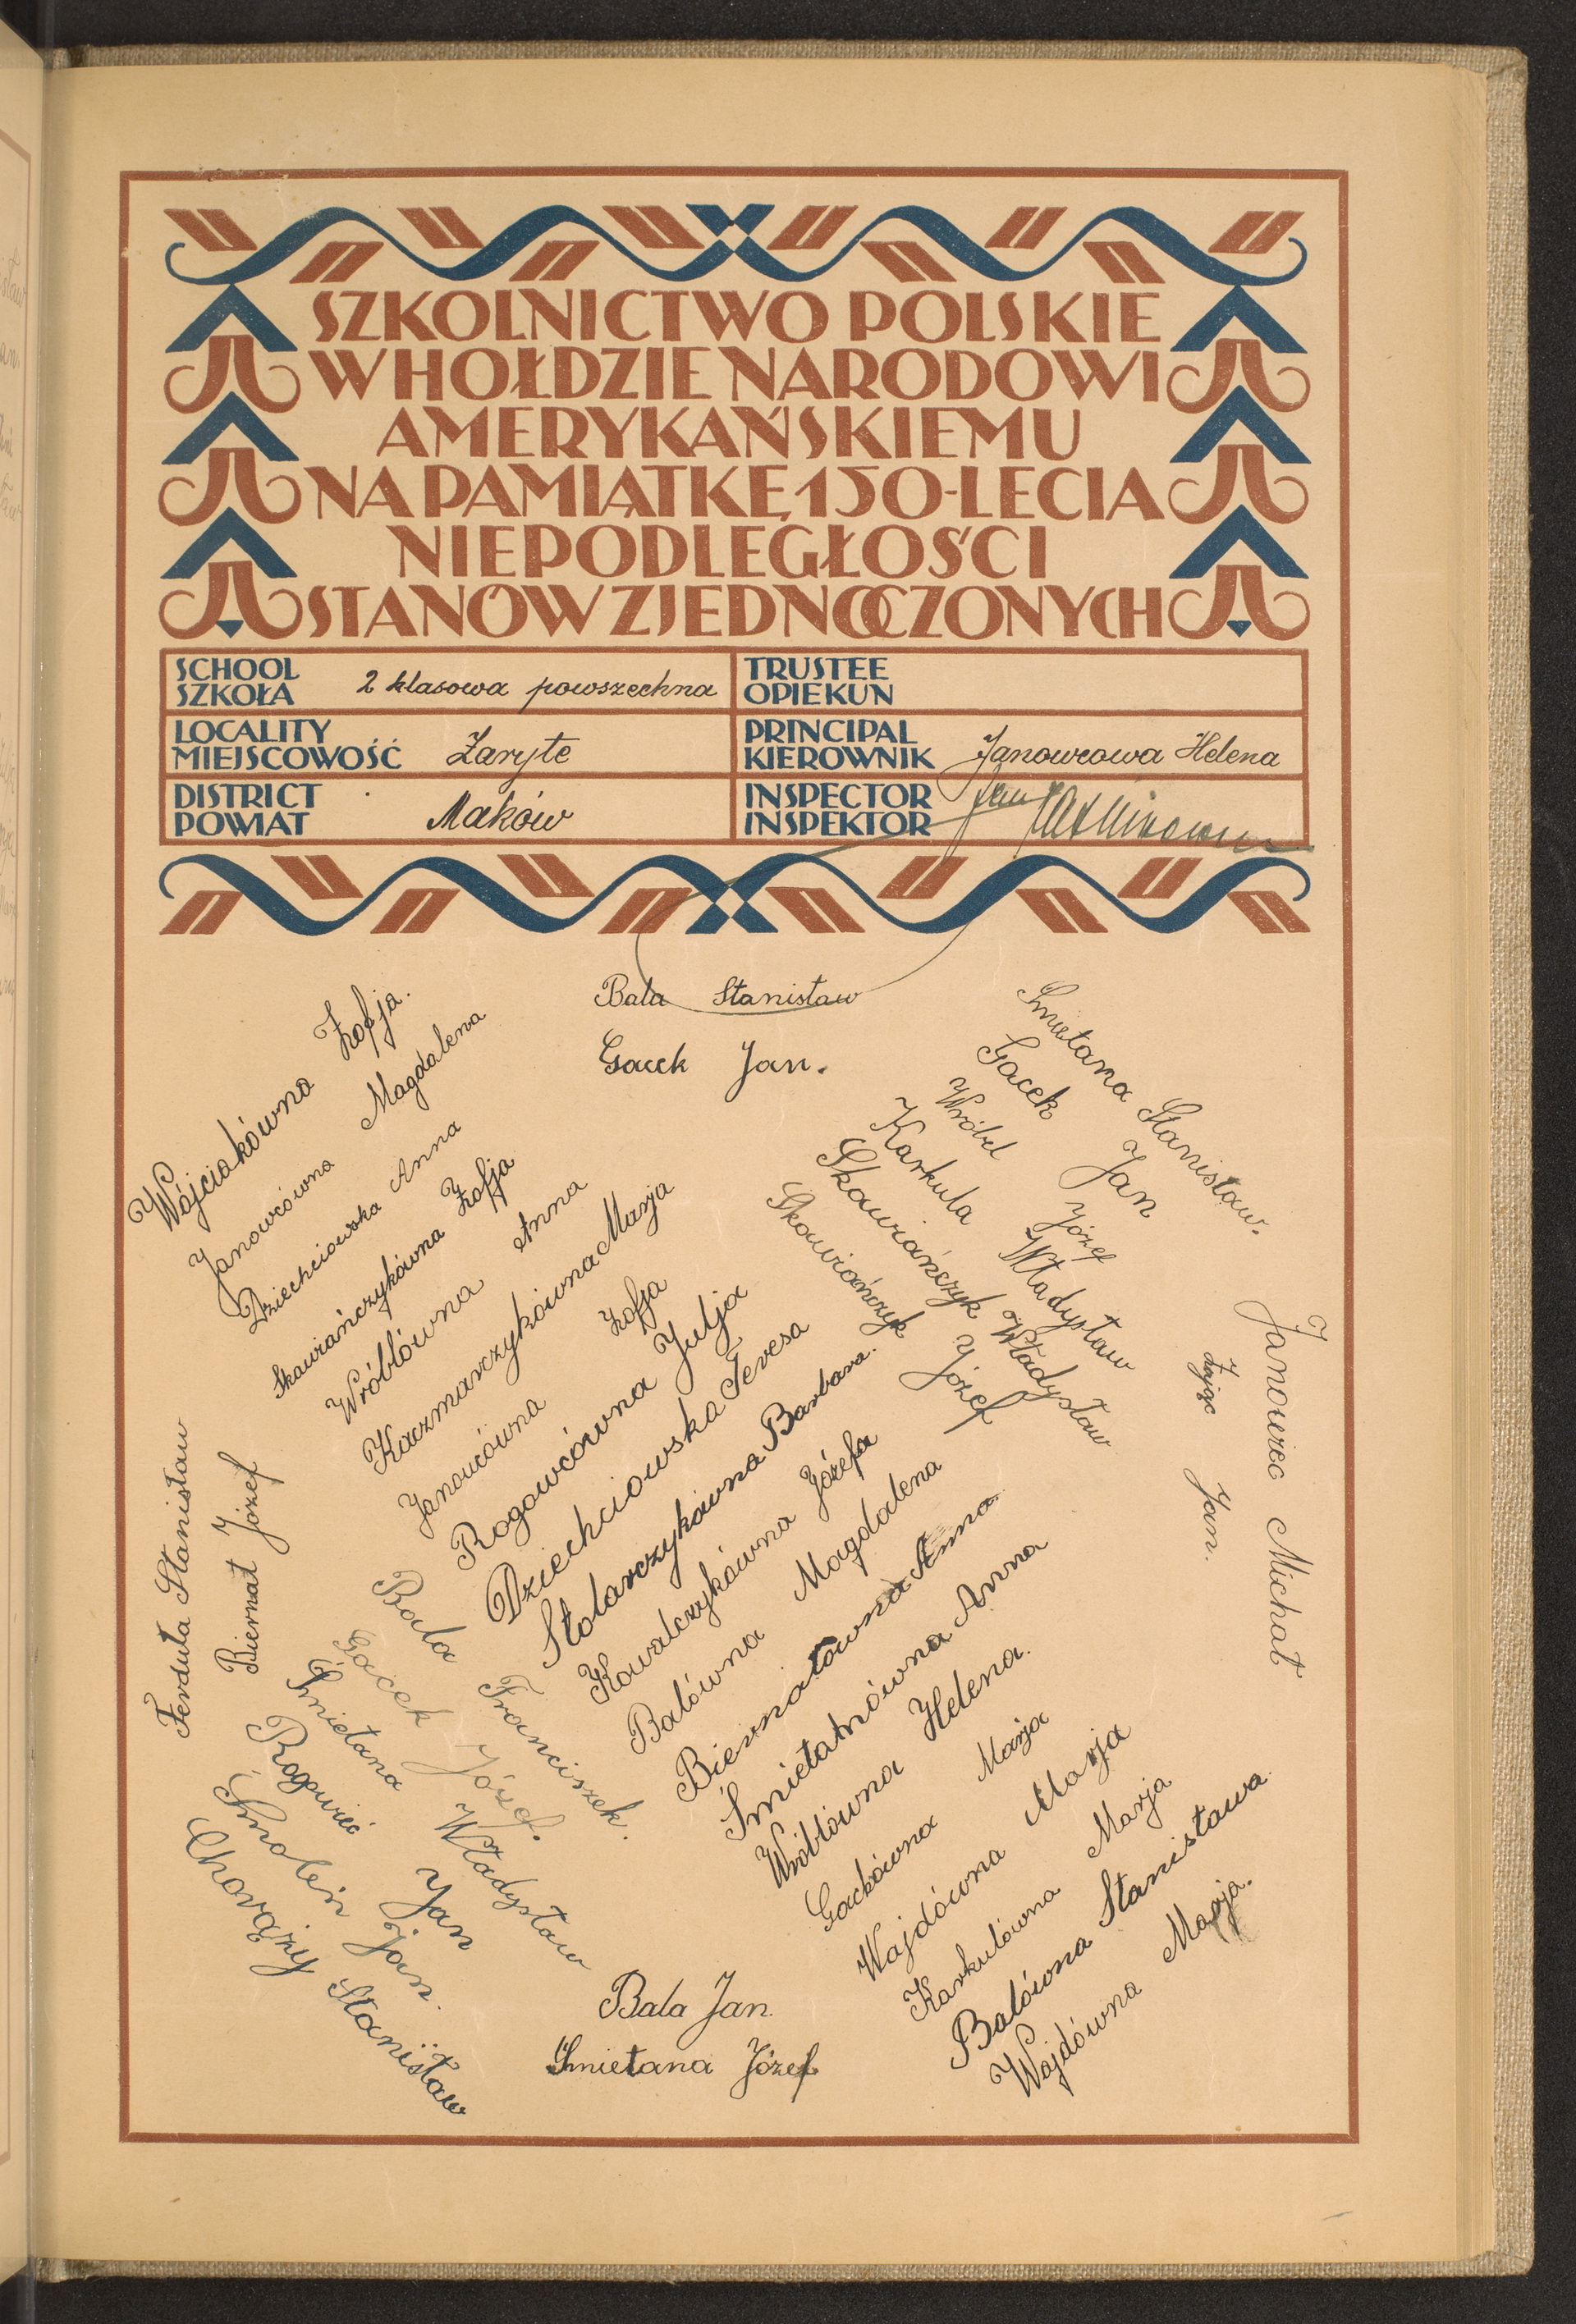 SZKOLNICTWO POLSKIE
W HOŁDZIE NARODOWI
AMERYKAŃSKIEMU
NA PAMIĄTKĘ 150-LECIA
NIEPODLEGŁOŚCI
STANÓW ZJEDNOCZONYCH
SCHOOL
SZKOŁA 2 klasowa powszechna
TRUSTEE
OPIEKUN
LOCALITY
MIEJSCOWOŚĆ Zaryte
PRINCIPAL
KIEROWNIK Janowcowa Helena
DISTRICT
POWIAT Maków
INSPECTOR
INSPEKTOR Jan
Bala Stanisław
Gacek Jan.
Wójciakówna Zofja.
Janowcówna Magdalena
Dziechciowska Anna
Skawiańczykówna Zofja
Wróblówna Anna
Kaczmarczykówna Marja
Janowcówna Zofja
Rogowcówna Julja
Dziechciowska Teresa
Stolarczykówna Barbara.
Kowalczykówna Józefa
Balówna Magdalena
Biernatówna Anna
Śmietanówna Anna
Wróblówna Helena.
Gackówna Marja
Wajdówna Marja
Karkulówna Marja
Balówna Stanisława.
Wajdówna Marja.
Smietana Stanisław.
Gacek Jan
Wróbel Józef
Karkula Władysław
Skawiańczyk Władysław
Skawiańczyk Józef
Janowiec Michał
Zając Jan.
Ferduła Stanisław
Biernat Józef
Bala Franciszek.
Gacek Józef.
Śmietana Władysław
Rogowiec Jan
Smoleń Jan.
Chorąży Stanisław
Bala Jan.
Smietana Józef